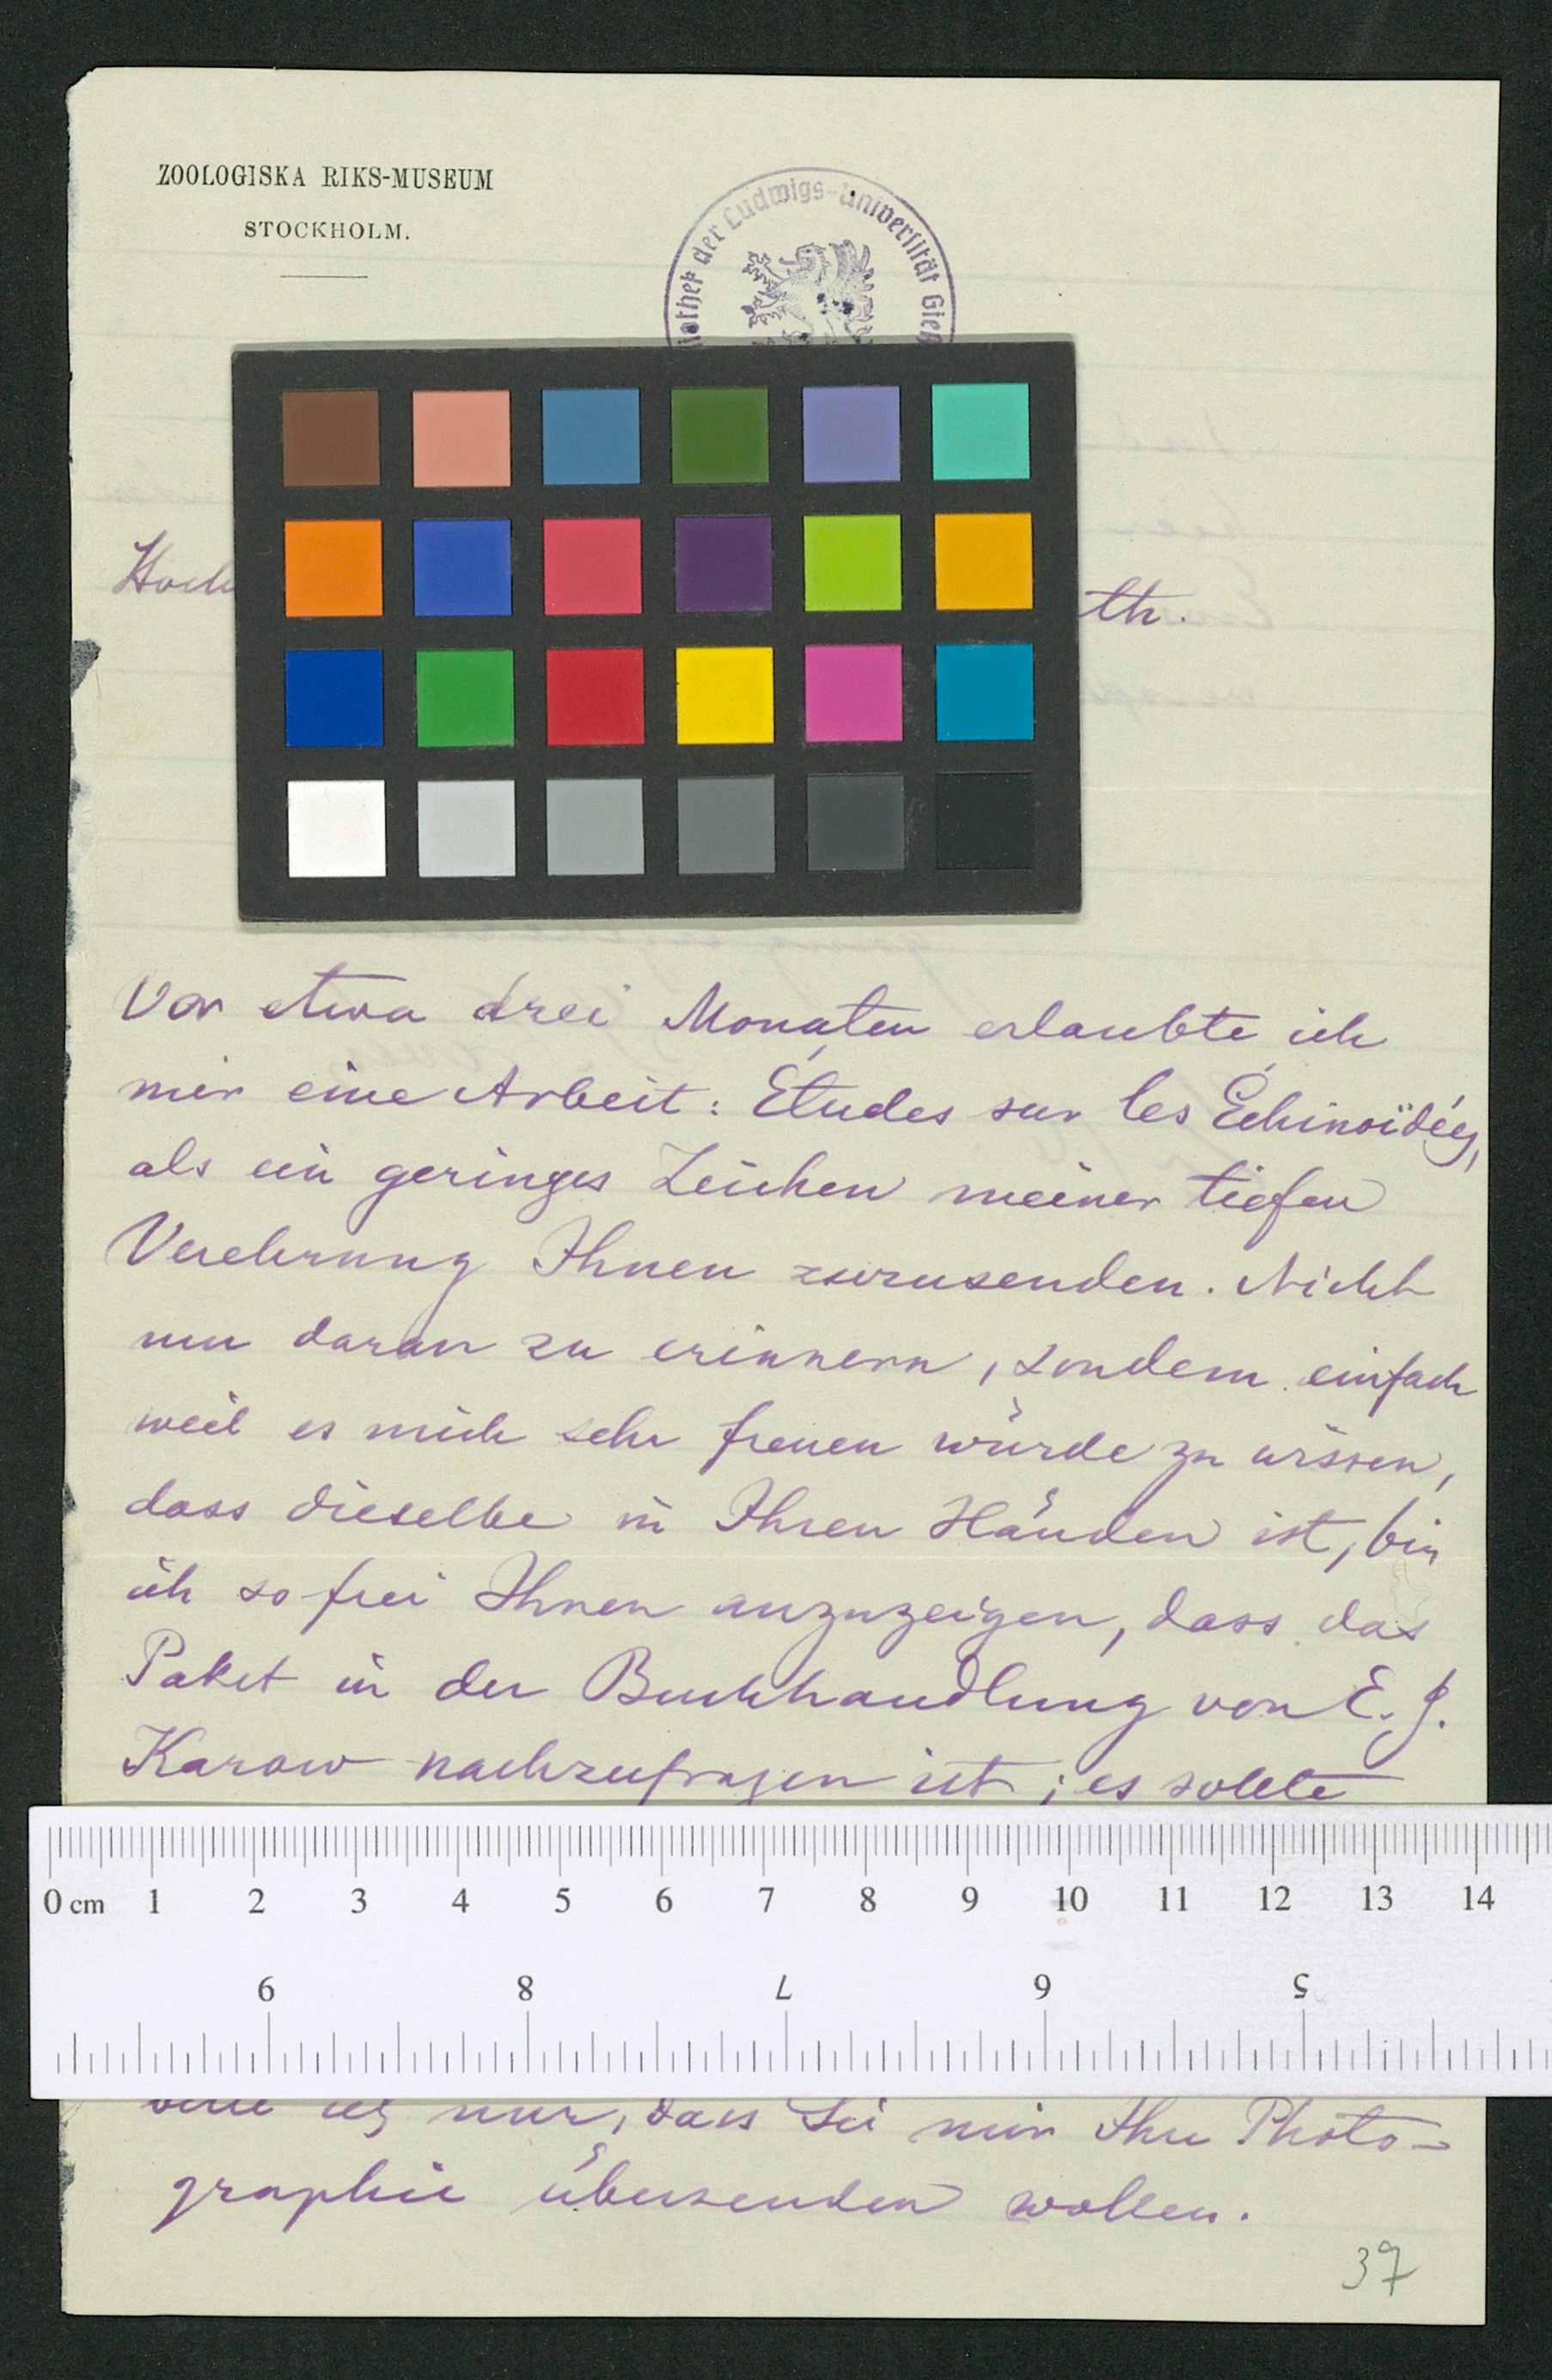 ZOOLOGISKA RIKS-MUSEUM
STOCKHOLM.
der Ludwigs-Universität
Vor etwa drei Monaten erlaubte ich
mir eine Arbeit: Études sur les Échinoïdées,
als ein geringes Zeichen meiner tiefen
Verehrung Ihnen zuzusenden. Nicht
um daran zu erinnern, sondern einfach
weil es mich sehr freuen würde zu wissen,
dass dieselbe in Ihren Händen ist, bin
ich so frei Ihnen anzuzeigen, dass das
Paket in der Buchhandlung von E. J.
Karow nachzufragen ist; es sollte
0 cm 1 2 3 4 5 6 7 8 9 10 11 12 13 14
9 8 7 6 5
nur, dass Sie mir Ihre Photo-
graphie übersenden wollen.
37